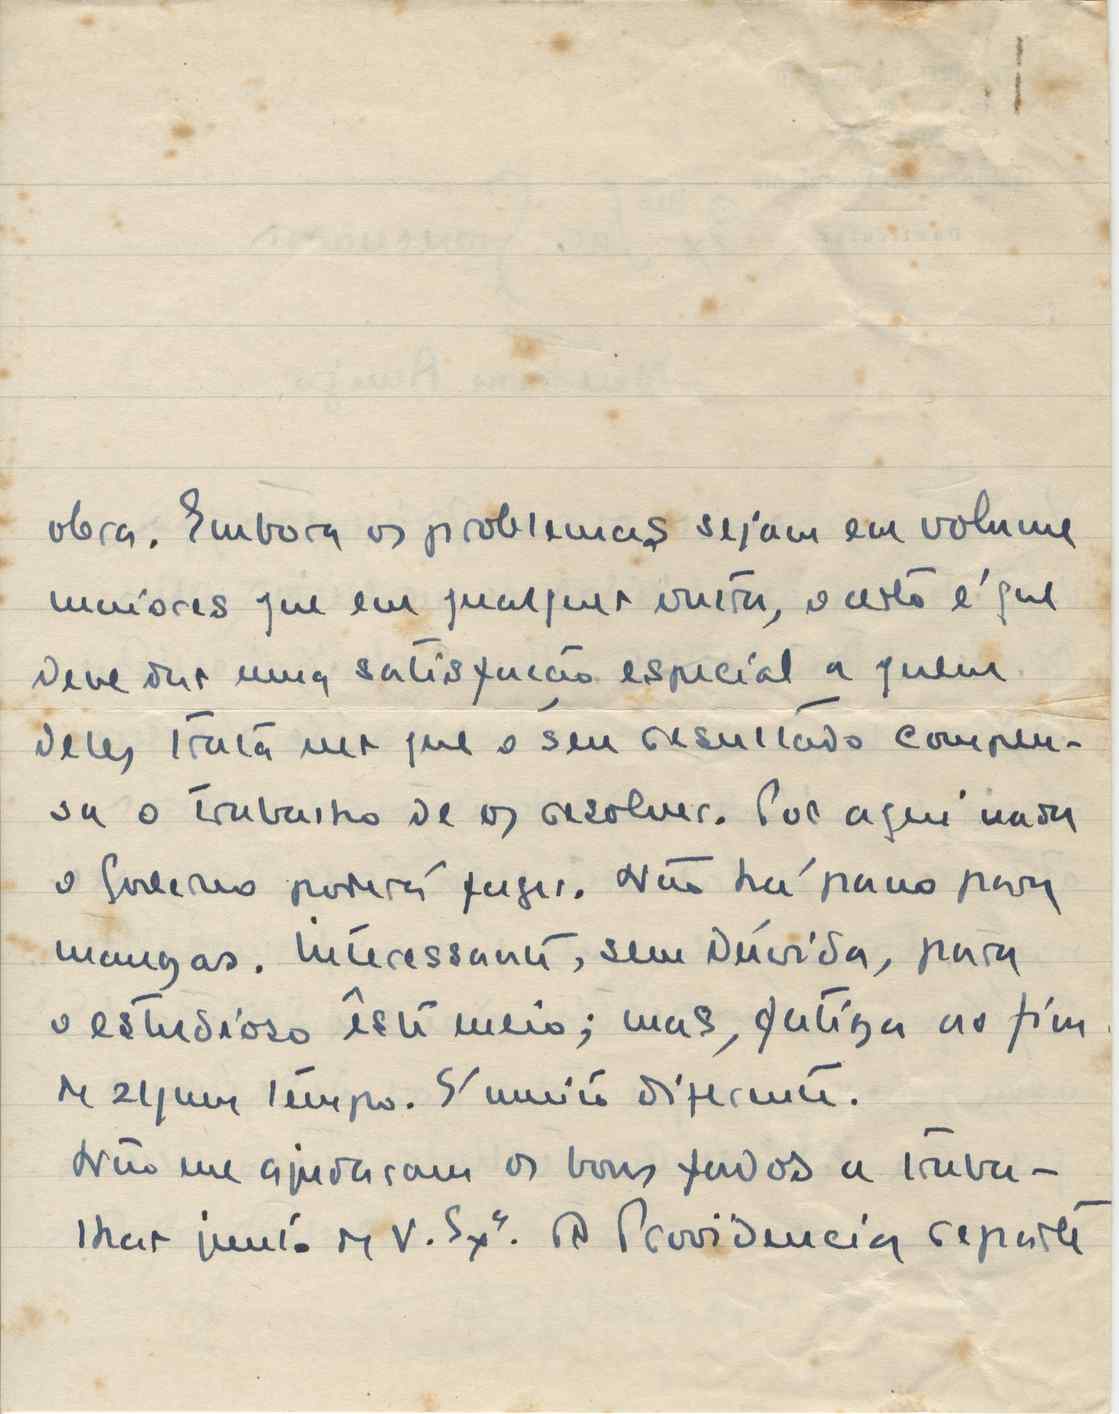 obra. Embora os problemas sejam em volume
maiores que em qualquer outra, o certo é que
deve dar uma satisfação especial a quem
deles trata ver que o seu resultado compen-
sa o trabalho de os resolver. Por aqui nada
o Governo poderá fazer. Não há pano para
mangas. Interessante, sem dúvida, para
o estudioso êste meio; mas, fatiga ao fim
de algum tempo. É muito diferente.
Não me ajudaram os bons fados a traba-
lhar junto de V. Exª. A Providencia reparte